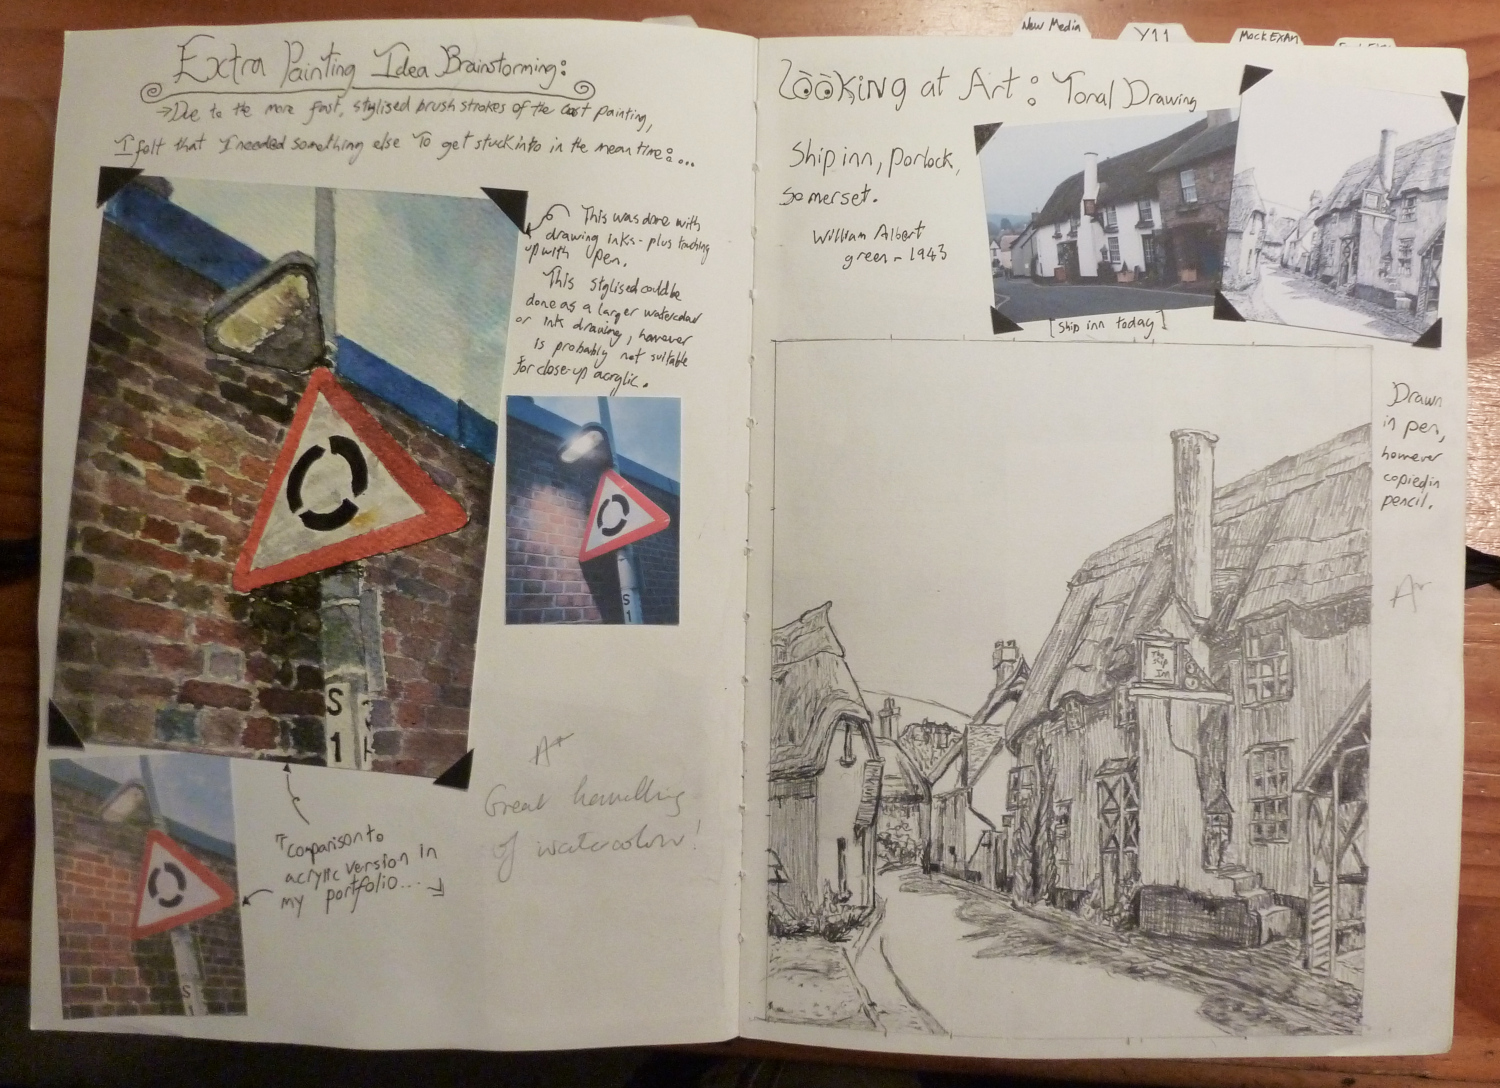 New Media
Y11
Mock EXAM
Extra Painting Idea Brainstorming:
→Due to the more fast, stylised brush strokes of the last painting,
I felt that I needed something else To get stuck into in the mean time:...
This was done with
drawing inks - plus touching
up with pen.
This stylised could be
done as a larger watercolour
or ink drawing, however
is probably not suitable
for close-up acrylic.
S
1
S
1
S
Comparison to
acrylic version in
my portfolio...
A*
Great handling
of watercolour!
Looking at Art: Tonal Drawing
Ship inn, Porlock,
Somerset.
William Albert
green - 1943
[Ship inn today]
Drawn
in pen,
however
copied in
pencil.
A*
The
Ship
Inn